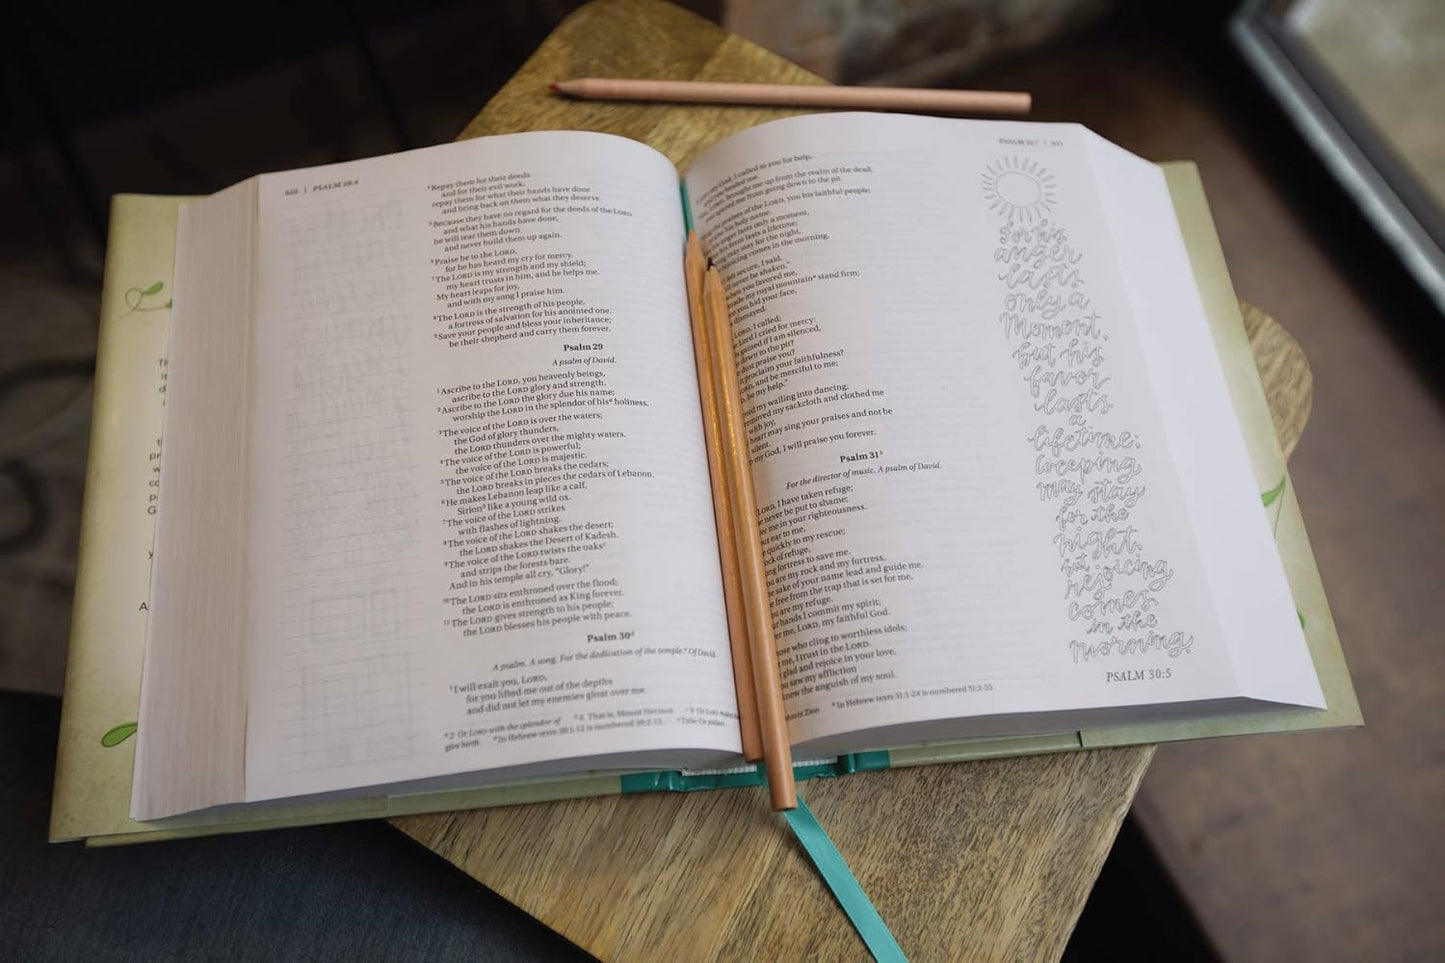 650 | PSALM 28:4
⁴Repay them for their deeds
and for their evil work;
repay them for what their hands have done
and bring back on them what they deserve.
⁵Because they have no regard for the deeds of the LORD
and what his hands have done,
he will tear them down
and never build them up again.
⁶Praise be to the LORD,
for he has heard my cry for mercy.
⁷The LORD is my strength and my shield;
my heart trusts in him, and he helps me.
My heart leaps for joy,
and with my song I praise him.
⁸The LORD is the strength of his people,
a fortress of salvation for his anointed one.
⁹Save your people and bless your inheritance;
be their shepherd and carry them forever.
Psalm 29
A psalm of David.
¹Ascribe to the LORD, you heavenly beings,
ascribe to the LORD glory and strength.
²Ascribe to the LORD the glory due his name;
worship the LORD in the splendor of hisᵃ holiness.
³The voice of the LORD is over the waters;
the God of glory thunders,
the LORD thunders over the mighty waters.
⁴The voice of the LORD is powerful;
the voice of the LORD is majestic.
⁵The voice of the LORD breaks the cedars;
the LORD breaks in pieces the cedars of Lebanon.
⁶He makes Lebanon leap like a calf,
Sirionᵇ like a young wild ox.
⁷The voice of the LORD strikes
with flashes of lightning.
⁸The voice of the LORD shakes the desert;
the LORD shakes the Desert of Kadesh.
⁹The voice of the LORD twists the oaksᶜ
and strips the forests bare.
And in his temple all cry, “Glory!”
¹⁰The LORD sits enthroned over the flood;
the LORD is enthroned as King forever.
¹¹The LORD gives strength to his people;
the LORD blesses his people with peace.
Psalm 30ᵈ
A psalm. A song. For the dedication of the temple.ᵉ Of David.
¹I will exalt you, LORD,
for you lifted me out of the depths
and did not let my enemies gloat over me.
ᵃ 2 Or LORD with the splendor of ᵇ 6 That is, Mount Hermon ᶜ 9 Or LORD makes
give birth ᵈ In Hebrew texts 30:1-12 is numbered 30:2-13. ᵉ Title: Or palace
PSALM 31:7 | 651
my God, I called to you for help,
you healed me.
LORD, brought me up from the realm of the dead;
spared me from going down to the pit.
praises of the LORD, you his faithful people;
his holy name.
anger lasts only a moment,
his favor lasts a lifetime;
may stay for the night,
rejoicing comes in the morning.
I felt secure, I said,
never be shaken.”
when you favored me,
made my royal mountainᵃ stand firm;
you hid your face,
dismayed.
LORD, I called;
Lord I cried for mercy:
gained if I am silenced,
down to the pit?
dust praise you?
it proclaim your faithfulness?
LORD, and be merciful to me;
be my help.”
my wailing into dancing;
removed my sackcloth and clothed me
with joy,
heart may sing your praises and not be
silent.
my God, I will praise you forever.
Psalm 31ᵇ
For the director of music. A psalm of David.
LORD, I have taken refuge;
never be put to shame;
me in your righteousness.
ear to me,
quickly to my rescue;
rock of refuge,
fortress to save me.
are my rock and my fortress,
sake of your name lead and guide me.
free from the trap that is set for me,
are my refuge.
hands I commit my spirit;
me, LORD, my faithful God.
those who cling to worthless idols;
me, I trust in the LORD.
glad and rejoice in your love,
saw my affliction
knew the anguish of my soul.
Mount Zion ᵇ In Hebrew texts 31:1-24 is numbered 31:2-25.
for his
anger
lasts
only a
moment,
but his
favor
lasts
a
lifetime;
weeping
may stay
for the
night,
but
rejoicing
comes
in the
morning.
PSALM 30:5